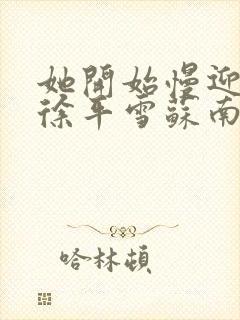 她開始慢迎
徐平雪蘇南
哈林頓